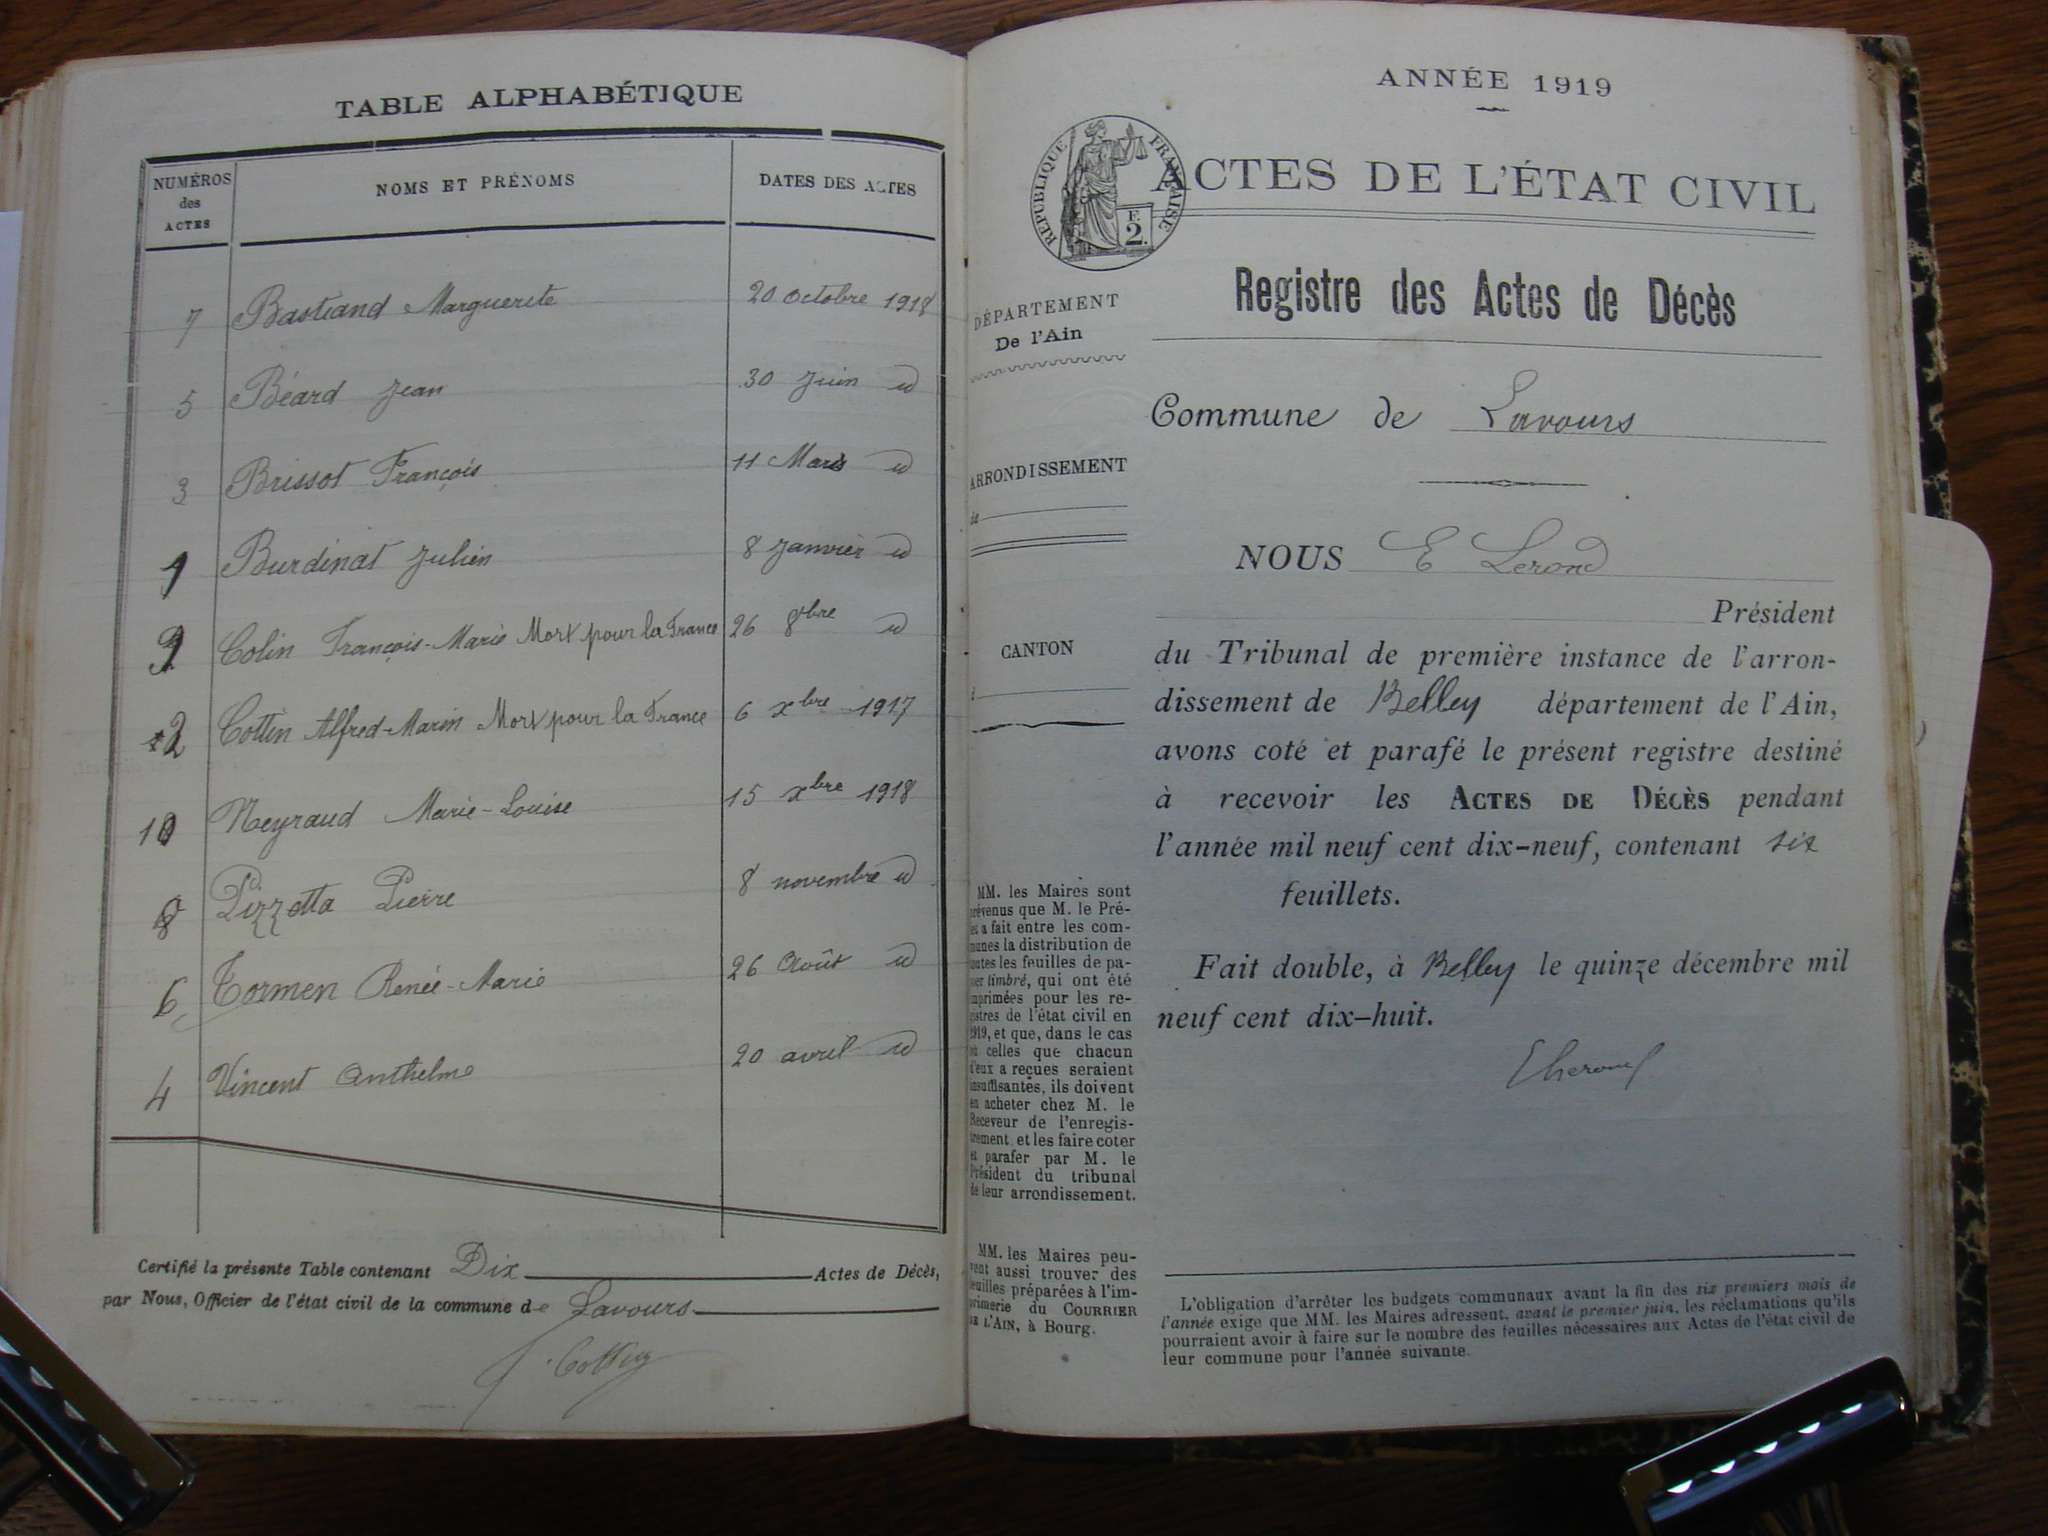 TABLE ALPHABÉTIQUE
NUMÉROS des ACTES NOMS ET PRÉNOMS DATES DES ACTES
7 Bastrand Marguerite 20 Octobre 1918
5 Béard Jean 30 Juin id
3 Brissot François 11 Mars id
1 Burdinat Julien 8 Janvier id
9 Colin François-Marie Mort pour la France 26 8bre id
2 Cottin Alfred-Marin Mort pour la France 6 xbre 1917
10 Neyraud Marie-Louise 15 xbre 1918
8 Pizzetta Pierre 8 novembre id
6 Tormen Renée-Marie 26 Août id
4 Vincent Anthelme 20 avril id
Certifié la présente Table contenant Dix Actes de Décès,
par Nous, Officier de l'état civil de la commune de Lavours
Cottin
ANNÉE 1919
RÉPUBLIQUE FRANÇAISE
F. 2.
ACTES DE L'ÉTAT CIVIL
Registre des Actes de Décès
DÉPARTEMENT
De l'Ain
Commune de Lavours
ARRONDISSEMENT
de
NOUS E Lerond
Président
CANTON
du Tribunal de première instance de l'arron-
dissement de Belley département de l'Ain,
avons coté et parafé le présent registre destiné
à recevoir les ACTES DE DÉCÈS pendant
l'année mil neuf cent dix-neuf, contenant six
feuillets.
Fait double, à Belley le quinze décembre mil
neuf cent dix-huit.
MM. les Maires sont
prévenus que M. le Pré-
fet a fait entre les com-
munes la distribution de
toutes les feuilles de pa-
pier timbré, qui ont été
imprimées pour les re-
gistres de l'état civil en
1919, et que, dans le cas
où celles que chacun
d'eux a reçues seraient
insuffisantes, ils doivent
en acheter chez M. le
Receveur de l'enregis-
trement et les faire coter
et parafer par M. le
Président du tribunal
de leur arrondissement.
MM. les Maires peu-
vent aussi trouver des
feuilles préparées à l'im-
primerie du COURRIER
DE L'AIN, à Bourg.
L'obligation d'arrêter les budgets communaux avant la fin des six premiers mois de
l'année exige que MM. les Maires adressent, avant le premier juin, les réclamations qu'ils
pourraient avoir à faire sur le nombre des feuilles nécessaires aux Actes de l'état civil de
leur commune pour l'année suivante.